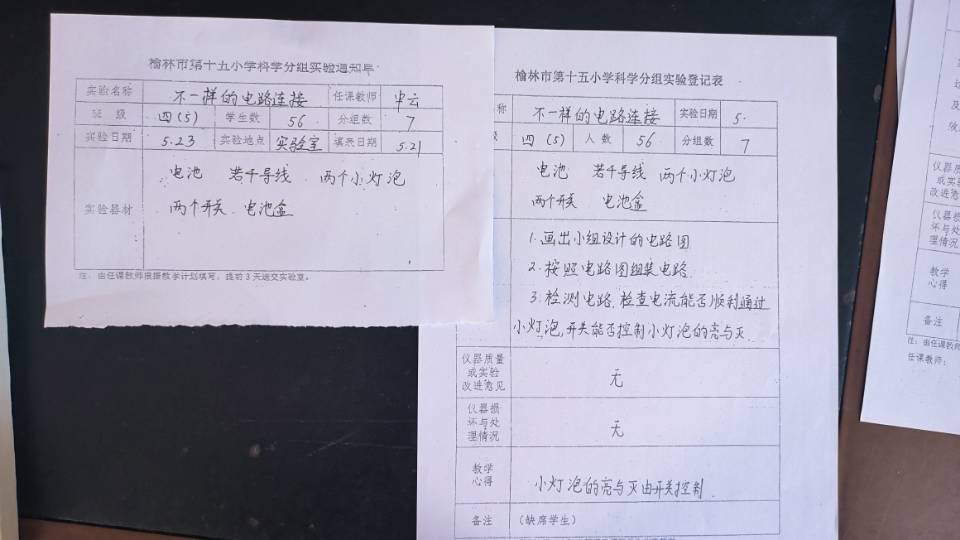 榆林市第十五小学科学分组实验通知单
实验名称 不一样的电路连接 任课教师
班 级 四(5) 学生数 56 分组数 7
实验日期 5.23 实验地点 实验室 填表日期 5.21
实验器材 电池 若干导线 两个小灯泡
两个开关 电池盒
注:由任课教师根据教学计划填写,提前3天送交实验室。
榆林市第十五小学科学分组实验登记表
称 不一样的电路连接 实验日期 5.
级 四(5) 人 数 56 分组数 7
电池 若干导线 两个小灯泡
两个开关 电池盒
1.画出小组设计的电路图
2.按照电路图组装电路
3.检测电路,检查电流能否顺利通过
小灯泡,开关能否控制小灯泡的亮与灭.
仪器质量
或实验
改进意见 无
仪器损
坏与处
理情况 无
教学
心得 小灯泡的亮与灭由开关控制.
备注 (缺席学生)
仪器质
或实
改进意
仪器损
坏与处
理情况
教学
心得
备注
注:由任课教师
任课教师: